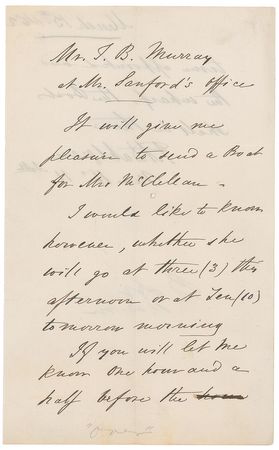 Mr. T. B. Murray
at Mr. Sanford's office
It will give me
pleasure to send a Boat
for Mrs McClelean -
I would like to know
however, whether she
will go at three (3) this
afternoon or at Ten (10)
tomorrow morning
If you will let me
know one hour and a
half before the hour
"Over"